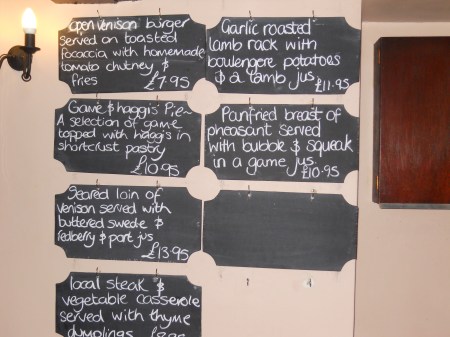 Open venison burger
served on toasted
focaccia with homemade
tomato chutney &
fries £7.95
Garlic roasted
lamb rack with
boulengere potatoes
& a lamb jus £11.95
Game & haggis Pie -
A selection of game
topped with haggis in
shortcrust pastry
£10.95
Panfried breast of
pheasant served
with bubble & squeak
in a game jus.
£10.95
Seared loin of
venison served with
buttered swede &
redberry & port jus
£13.95
local steak &
vegetable casserole
served with thyme
dumplings